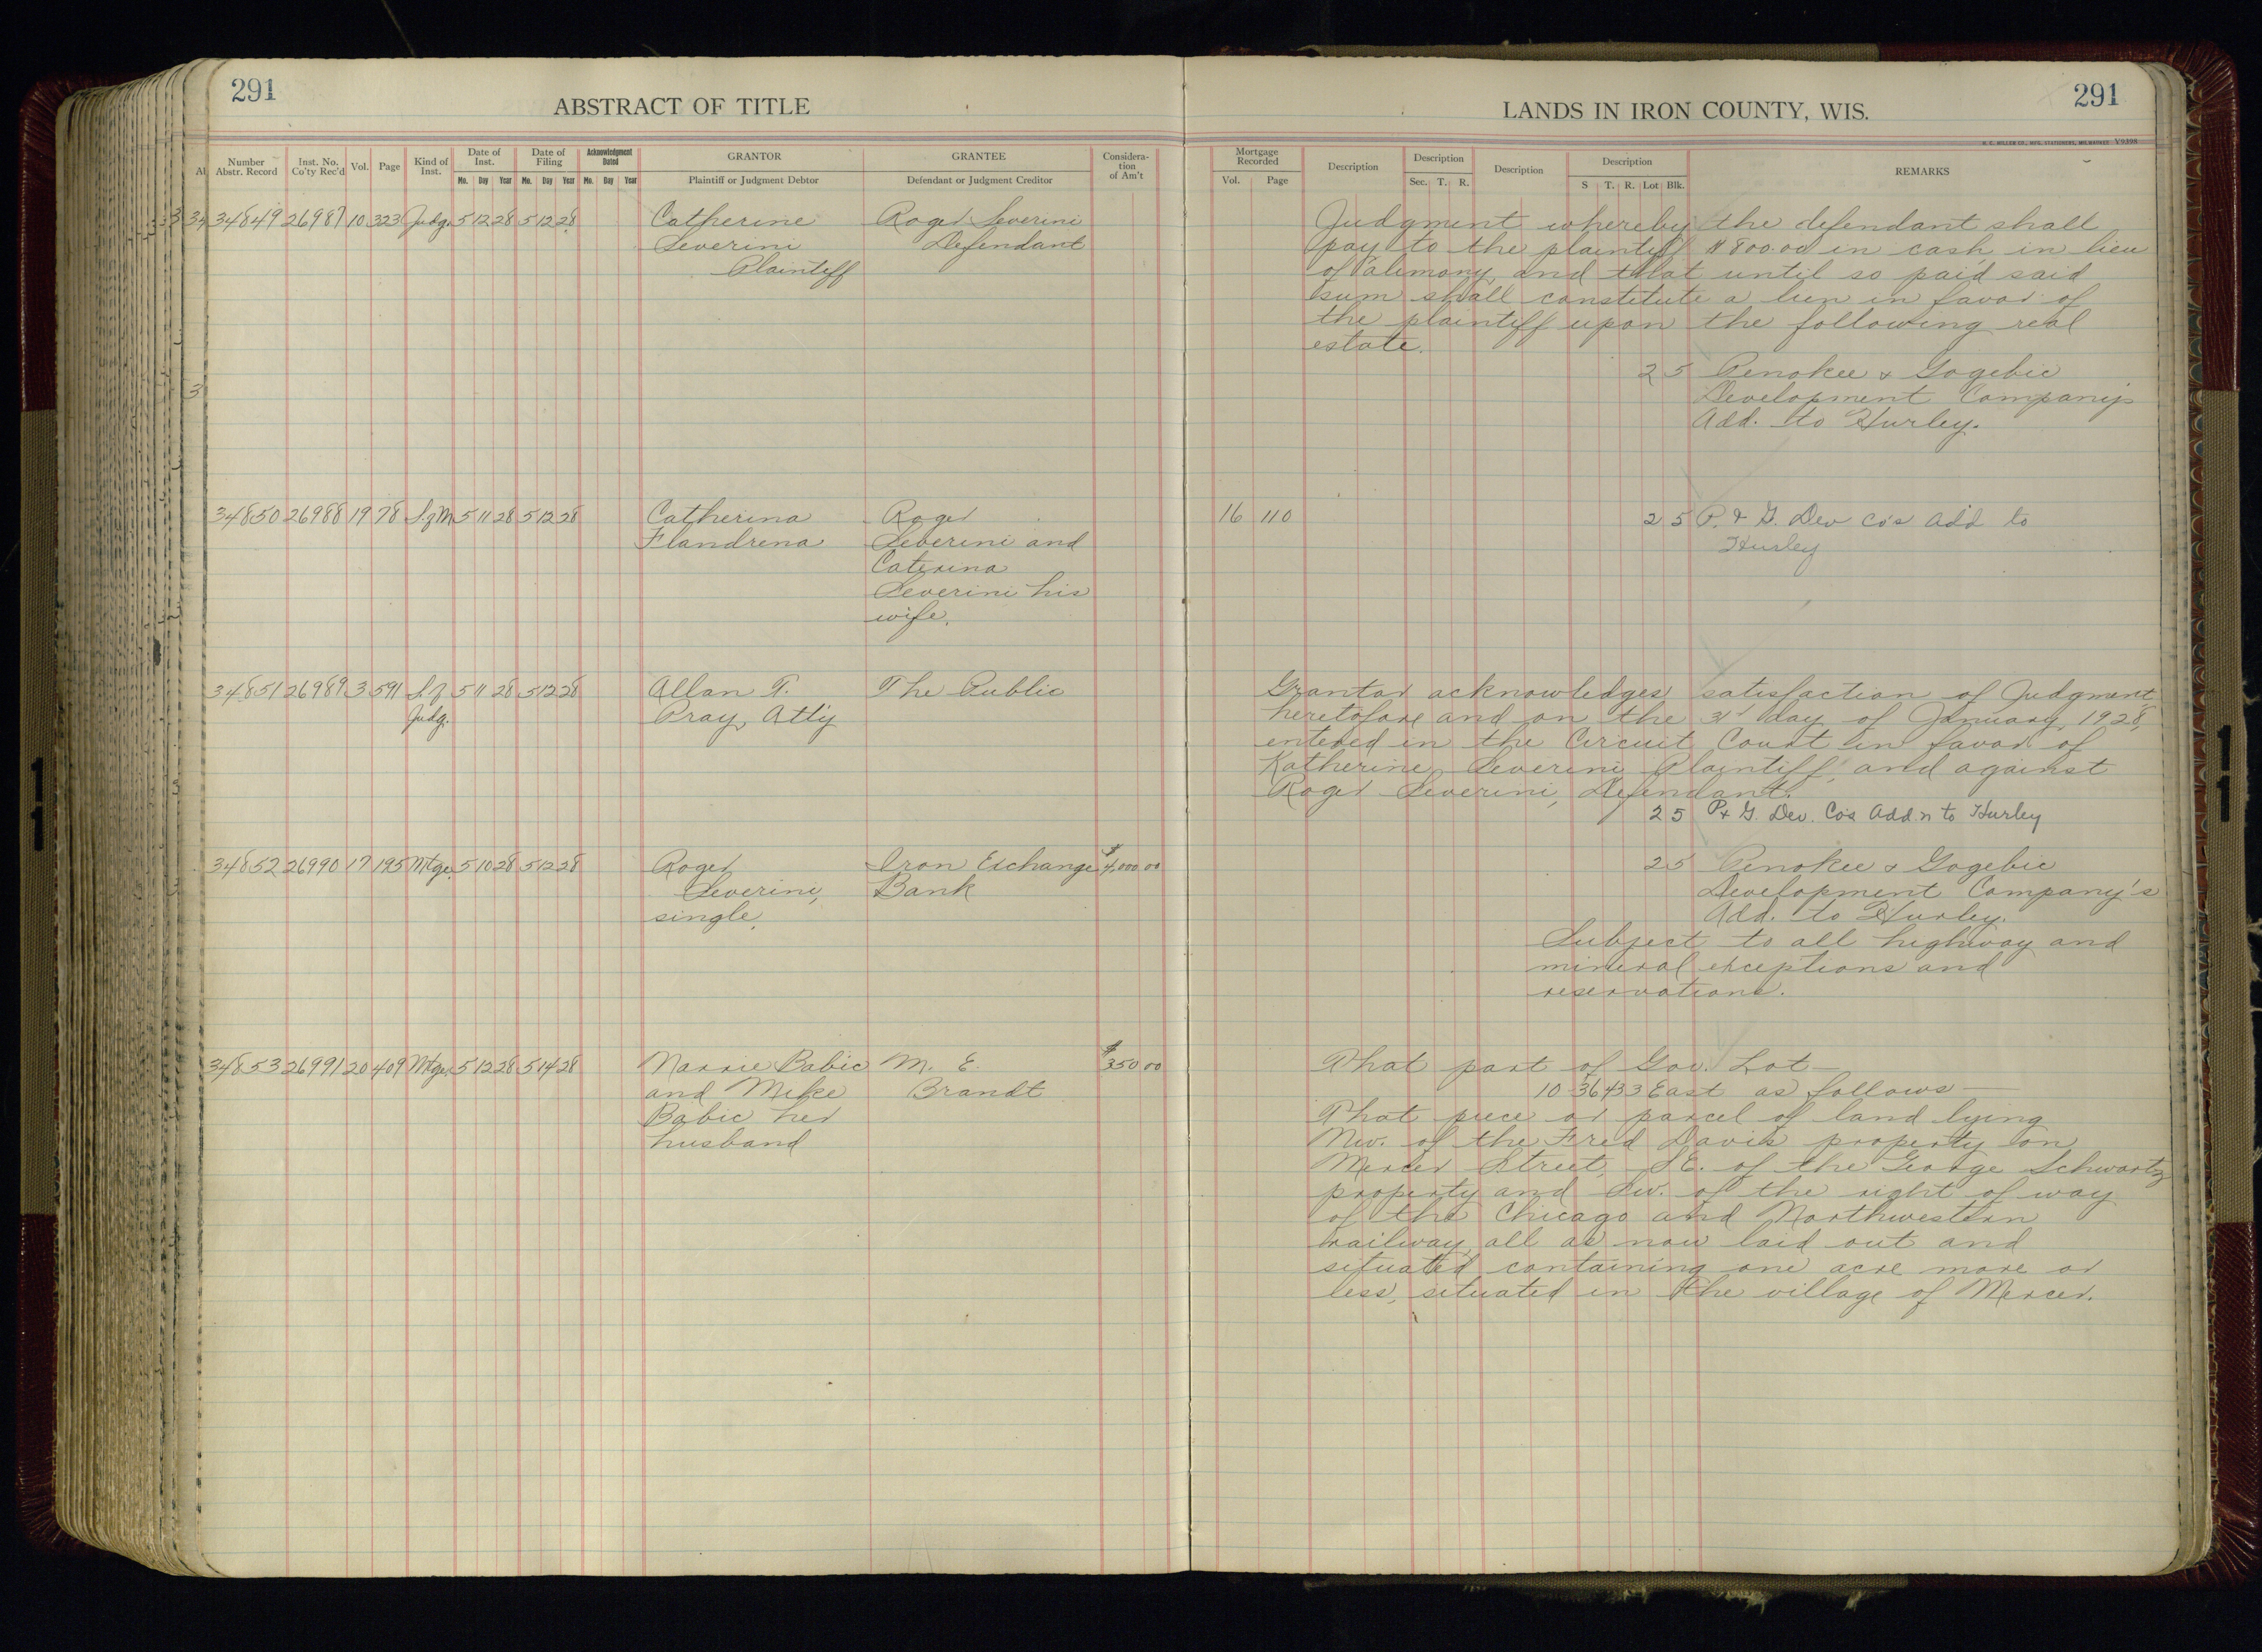 291
ABSTRACT OF TITLE
LANDS IN IRON COUNTY, WIS.
291
H. C. MILLER CO., MFG. STATIONERS, MILWAUKEE V9398
Number Abstr. Record | Inst. No. Co'ty Rec'd | Vol. | Page | Kind of Inst. | Date of Inst. Mo. Day Year | Date of Filing Mo. Day Year | Acknowledgment Dated Mo. Day Year | GRANTOR Plaintiff or Judgment Debtor | GRANTEE Defendant or Judgment Creditor | Considera-tion of Am't
Mortgage Recorded Vol. Page | Description | Description Sec. T. R. | Description | Description S T. R. Lot Blk. | REMARKS
34849 26987 10 323 Judg. 5 12 28 5 12 28 Catherine Roger Severini
Severini Defendant
Plaintiff
Judgment whereby the defendant shall
pay to the plaintiff $800.00 in cash in lieu
of alimony, and that until so paid said
sum shall constitute a lien in favor of
the plaintiff upon the following real
estate.
2 5 Penokee & Gogebic
Development Company's
Add. to Hurley.
34850 26988 19 78 S. of M. 5 11 28 5 12 28 Catherina Roger
Flandrena Severini and
Caterina
Severini his
wife.
16 110 2 5 P. & G. Dev Co's Add to
Hurley
34851 26989 3 591 S. of 5 11 28 5 12 28 Allan T. The Public
Judg. Pray, Att'y
Grantor acknowledges satisfaction of Judgment
heretofore and on the 31st day of January, 1928,
entered in the Circuit Court in favor of
Katherine Severini Plaintiff, and against
Roger Severini, Defendant.
2 5 P & G. Dev. Co's Add'n to Hurley
34852 26990 17 195 Mtge. 5 10 28 5 12 28 Roger Iron Exchange $4,000.00
Severini, Bank
single.
2 5 Penokee & Gogebic
Development Company's
Add. to Hurley.
Subject to all highway and
mineral exceptions and
reservations.
34853 26991 20 409 Mtge. 5 12 28 5 14 28 Babic M. E. $350 00
and Mike Brandt
Babic her
husband
That part of Gov. Lot
10 36 43 3 East as follows
That piece or parcel of land lying
Nw. of the Fred Davis property on
Mercer Street, SE. of the George Schwartz
property and Sw. of the right of way
of the Chicago and Northwestern
railway, all as now laid out and
situated containing one acre more or
less, situated in the village of Mercer.